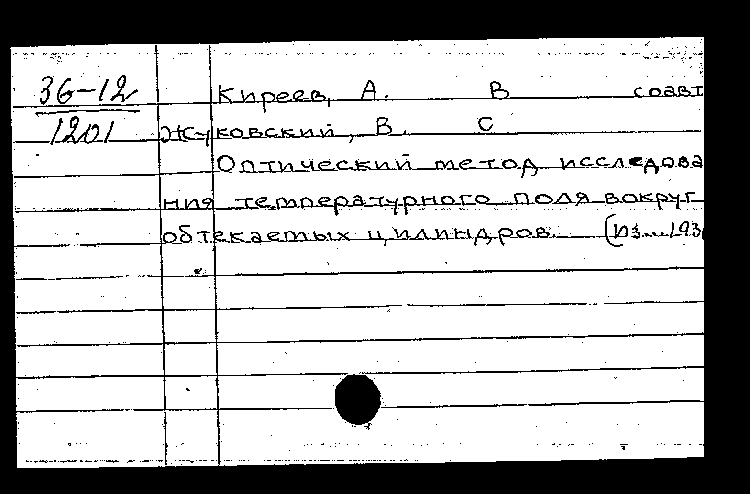 36-12
1201
Киреев, А. В соавт
Жуковский, В. С
Оптический метод исследова
ния температурного поля вокруг
обтекаемых цилиндров. (Из...,193